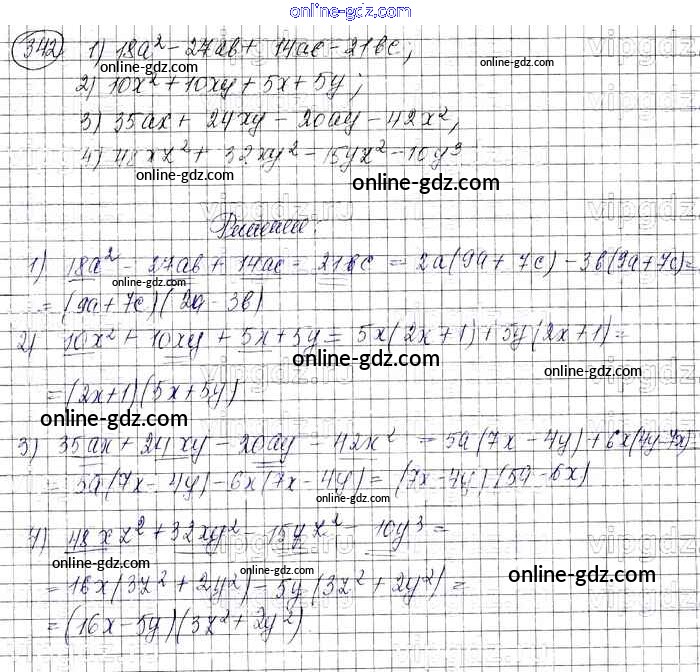 online-gdz.com
342) 1) 18a² - 27ab + 14ac - 21bc;
online-gdz.com online-gdz.com
2) 10x² + 10xy + 5x + 5y;
3) 35ax + 24xy - 20ay - 42x²,
4) 48xz² + 32xy² - 15yz² - 10y³
online-gdz.com online-gdz.com
vipgdz.ru
Решение:
1) 18a² - 27ab + 14ac - 21bc = 2a(9a + 7c) - 3b(9a + 7c) =
online-gdz.com
= (9a + 7c)(2a - 3b)
2) 10x² + 10xy + 5x + 5y = 5x(2x + 1) + 5y(2x + 1) =
online-gdz.com online-gdz.com
= (2x + 1)(5x + 5y)
online-gdz.com
3) 35ax + 24xy - 20ay - 42x² = 5a(7x - 4y) + 6x(4y - 7x) =
= 5a(7x - 4y) - 6x(7x - 4y) = (7x - 4y)(5a - 6x)
online-gdz.com
4) 48xz² + 32xy² - 15yz² - 10y³ =
online-gdz.com
= 16x(3z² + 2y²) - 5y(3z² + 2y²) =
online-gdz.com
= (16x - 5y)(3z² + 2y²)